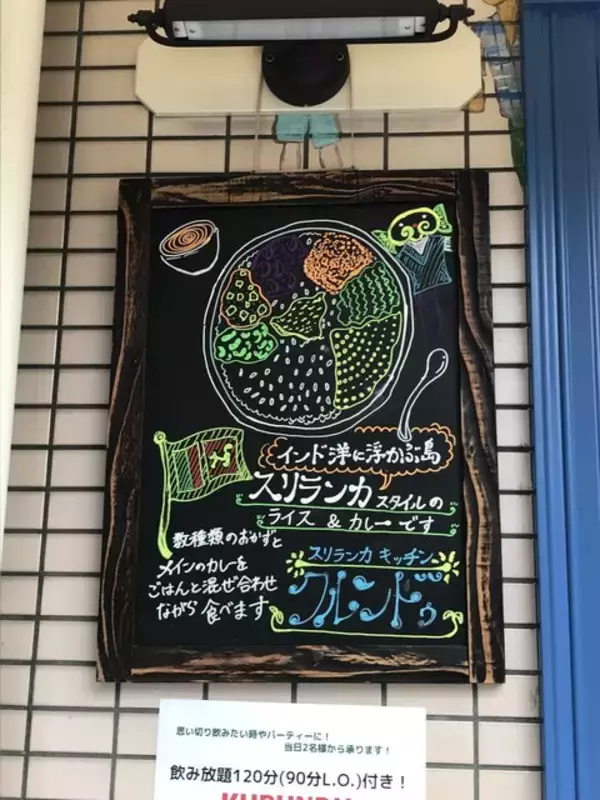 インド洋に浮かぶ島
スリランカ スタイルの
ライス & カレーです
数種類のおかずと
メインのカレーを
ごはんと混ぜ合わせ
ながら 食べます
スリランカ キッチン
クルンドゥ
思い切り飲みたい時やパーティーに！
当日2名様から承ります！
飲み放題120分(90分L.O.)付き！